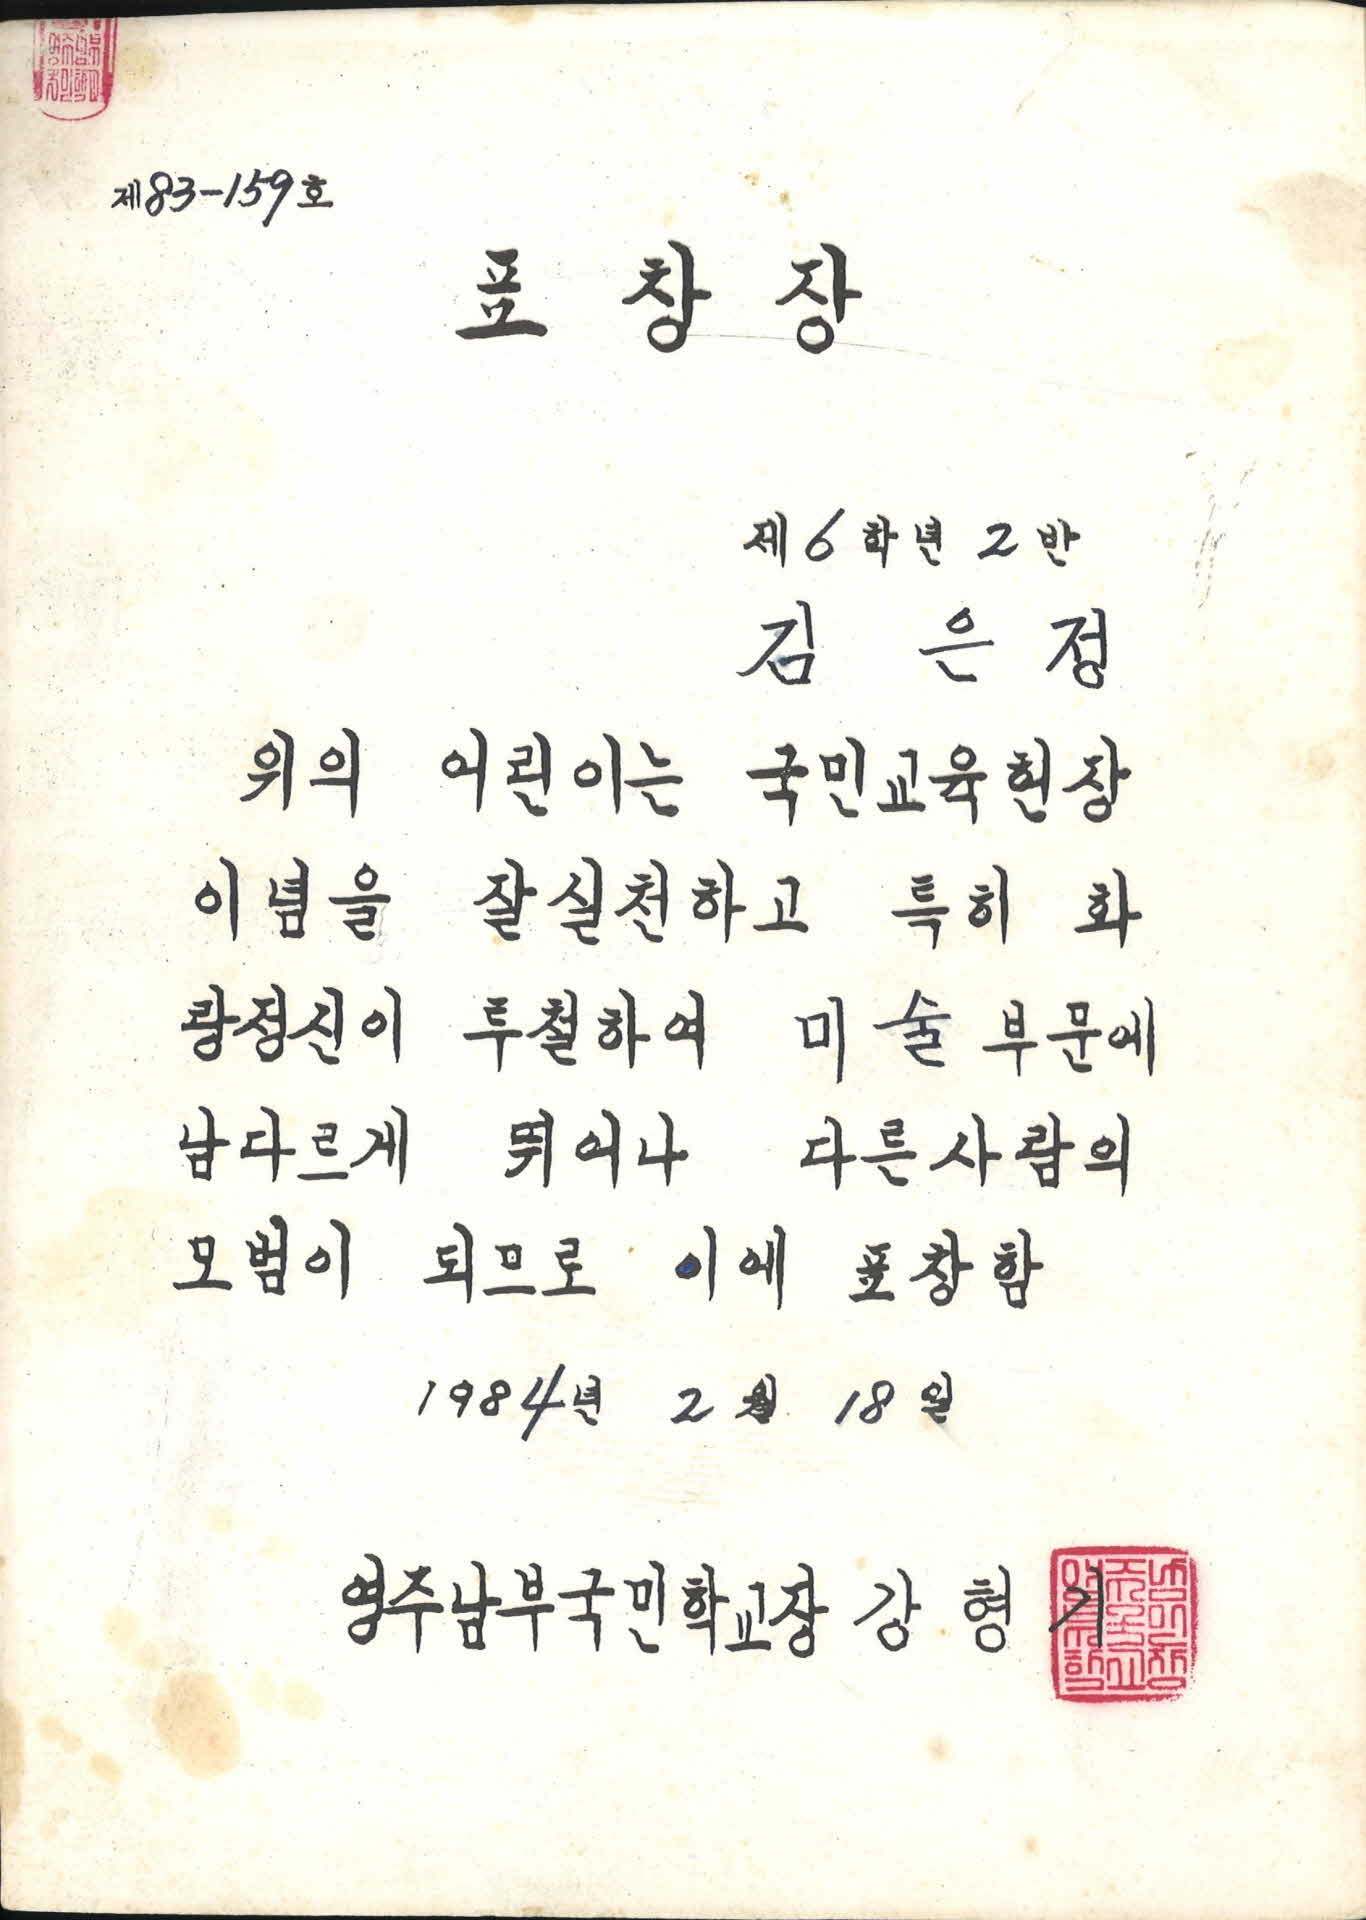 제83-159호
표창장
제6학년 2반
김은정
위의 어린이는 국민교육헌장
이념을 잘실천하고 특히 화
랑정신이 투철하여 미술부문에
남다르게 뛰어나 다른사람의
모범이 되므로 이에 표창함
1984년 2월 18일
영주남부국민학교장 강형기